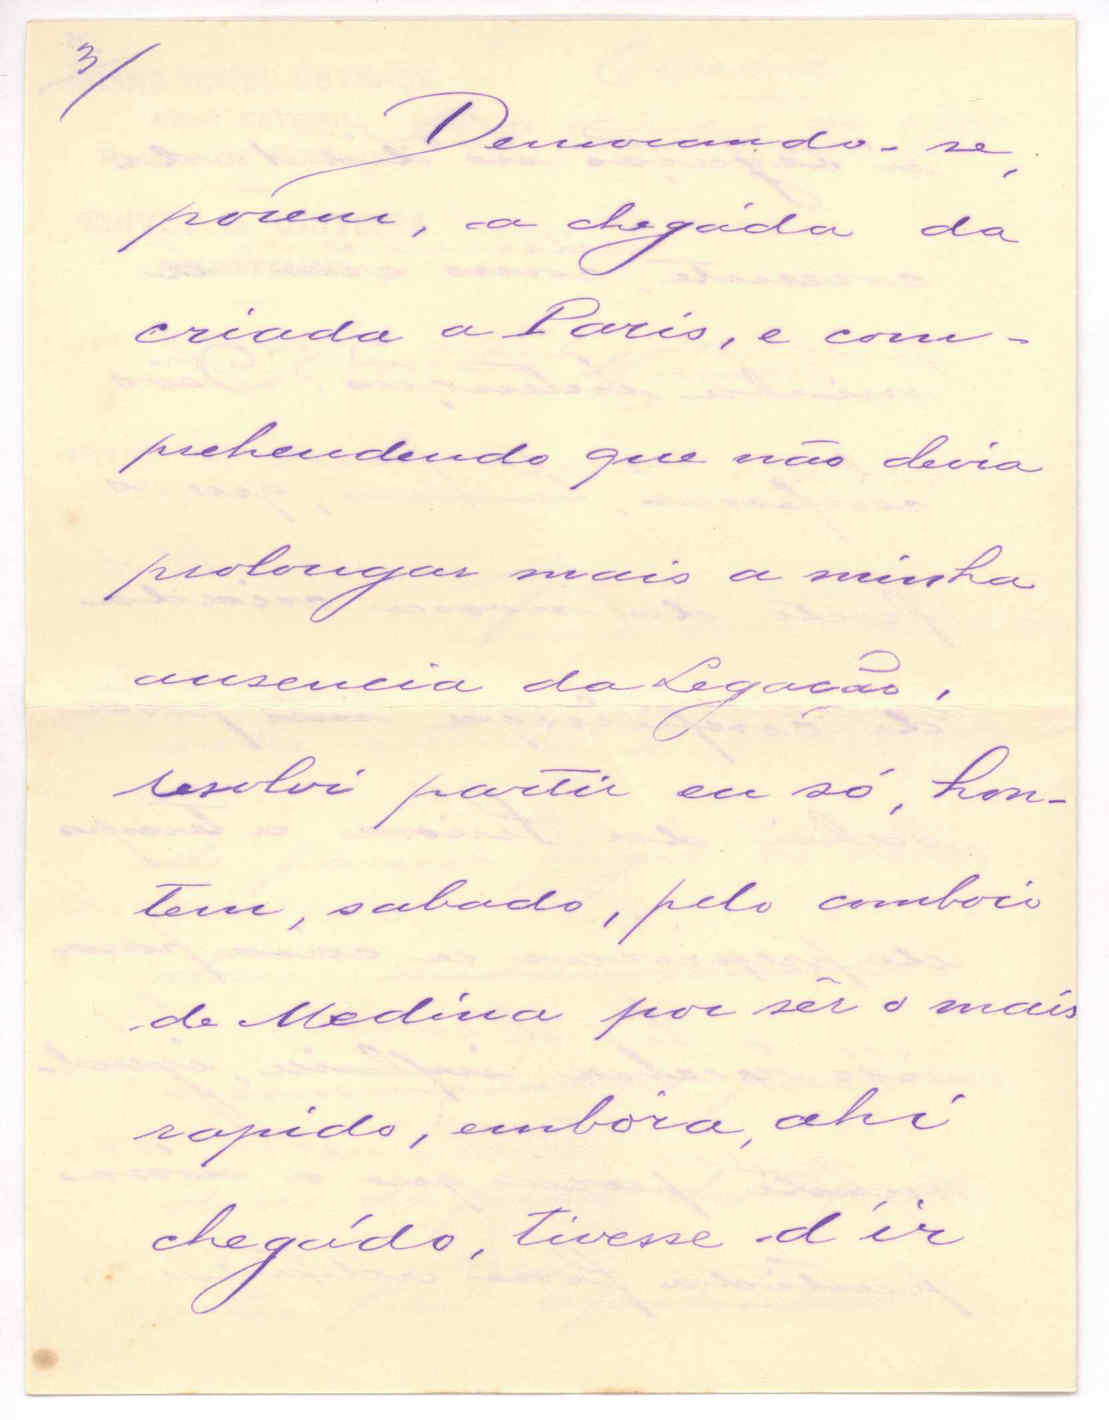 3/
Demorando-se,
porém, a chegáda da
criada a Paris, e com-
prehendendo que não devia
prolongar mais a minha
ausencia da Legação,
resolvi partir eu só, hon-
tem, sabado, pelo comboio
de Medina por sêr o mais
rapido, embóra, ahi
chegádo, tivesse d'ir